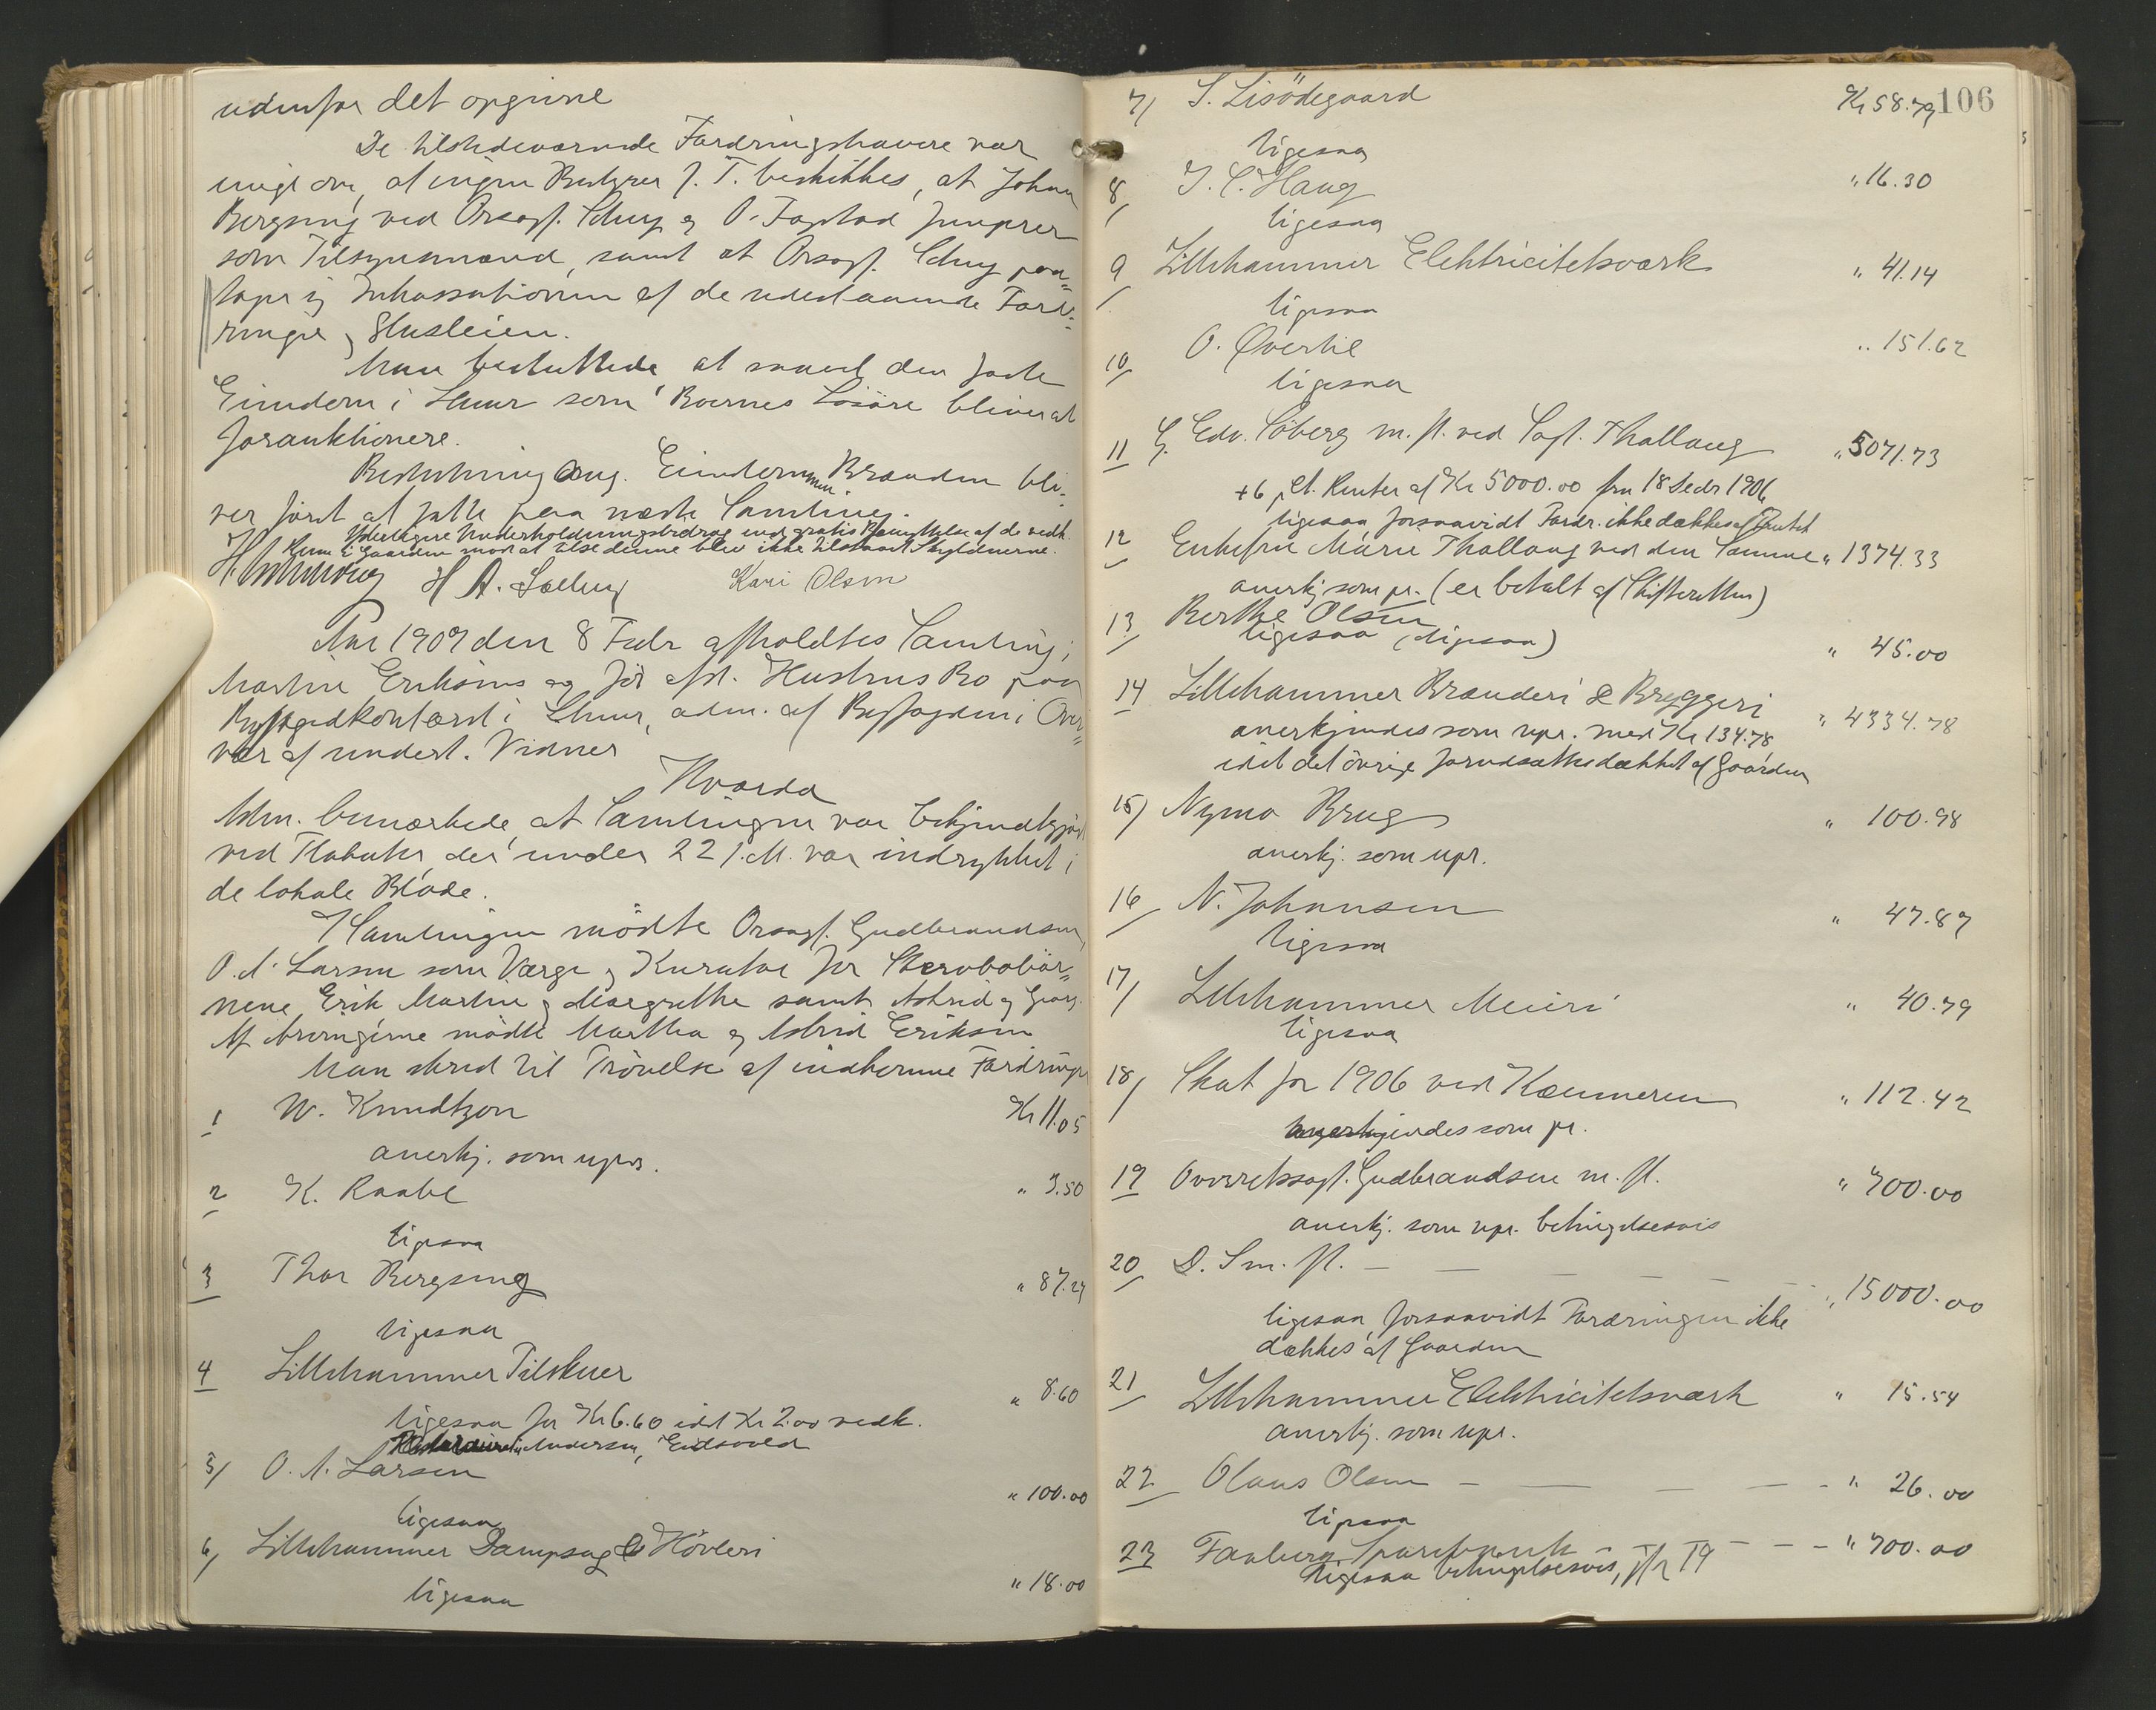 udenfor det opgivne
De tilstedeværende Fordringshavere var
enige om, at ingen Bestyrer f. T. beskikkes, at Johan
Bergseng ved Orsagf. Schey og O. Fogstad fungerer
som Tilsynsmænd, samt at Orsagf. Schey paa=
tager sig Inkassationen af de udestaaende Ford=
ringer og Husleien.
Man besluttede at saavel den faste
Eiendom i Lhmr som Boernes Løsöre bliver at
forauktionere.
Beslutning ang. Eiendommen Brænden bli-
ver först at fatte paa næste Samling.
Yderligere Underholdningsbidrag end gratis Benyttelse af de vedk.
Rum i Gaarden mod at tilse denne blev ikke tilstaaet Skyldnerne.
H. A. Solberg Kari Olsen
Aar 1907 den 8 Febr afholdtes Samling i
Martin Eriksens og för afd. Hustrus Bo paa
Byfogedkontoret i Lhmr, adm. af Byfogden i Over=
vær af undert. Vidner
Hvorda
Adm. bemærkede, at Samlingen var bekjendtgjort
ved Plakater, der under 22 f. M. var indrykket i
de lokale Blade.
I Samlingen mödte Orsagf. Gudbrandsen,
O. A. Larsen som Værge og Kurator for Stervbobör=
nene Erik Martin og Margrethe samt Astrid og Georg.
Af Arvingerne mödte Martha og Astrid Eriksen
Man skred til Prövelse af indkomne Fordringer
1 W. Knudtzon Kr 11.05
anerkj. som upr.
2 K. Raabe " 3.50
ligesaa
3 Thor Bergseng " 87.29
ligesaa
4 Lillehammer Tilskuer " 8.60
ligesaa for Kr 6.60 idet Kr 2.00 vedk.
Andersen, Eidsvold
5/ O. A. Larsen " 100.00
ligesaa
6/ Lillehammer Dampsag & Hövleri " 18.00
ligesaa
106
7/ S. Lisödegaard Kr 58.79
ligesaa
8/ J. C. Haug " 16.30
ligesaa
9/ Lillehammer Elektricitetsværk " 41.14
ligesaa
10/ O. Øverlie " 151.62
ligesaa
11 G. Edv. Söberg m. fl. ved Sagf. Thallaug " 5071.73
+ 6 pCt. Renter af Kr 5000.00 fra 18 Decbr 1906
ligesaa forsaavidt Fordr. ikke dækkes af Pantet
12 Enkefru Marie Thallaug ved den Samme " 1374.33
anerkj som pr. (er betalt af Skifteretten)
13/ Berthe Olsen " 45.00
ligesaa (ligesaa)
14 Lillehammer Brænderi & Bryggeri " 4334.78
anerkjendes som upr. med Kr 134.78
idet det övrige forudsættes dækket af Gaarden
15/ Nymo Brug " 100.98
anerkj. som upr.
16/ N. Johansen " 47.87
ligesaa
17/ Lillehammer Meieri " 40.79
ligesaa
18/ Skat for 1906 ved Kæmneren " 112.42
anerkjendes som pr.
19 Overretssagf. Gudbrandsen m. fl. " 700.00
anerkj. som upr. betingelsesvis
20/ D. S m. fl. — — — — — " 15000.00
ligesaa forsaavidt Fordringen ikke
dækkes af Gaarden
21/ Lillehammer Elektricitetsværk " 15.54
anerkj. som upr.
22 Olaus Olsen — — — — " 26.00
ligesaa
23 Faaberg Sparebank — — — " 700.00
ligesaa betingelsesvis, jfr 19